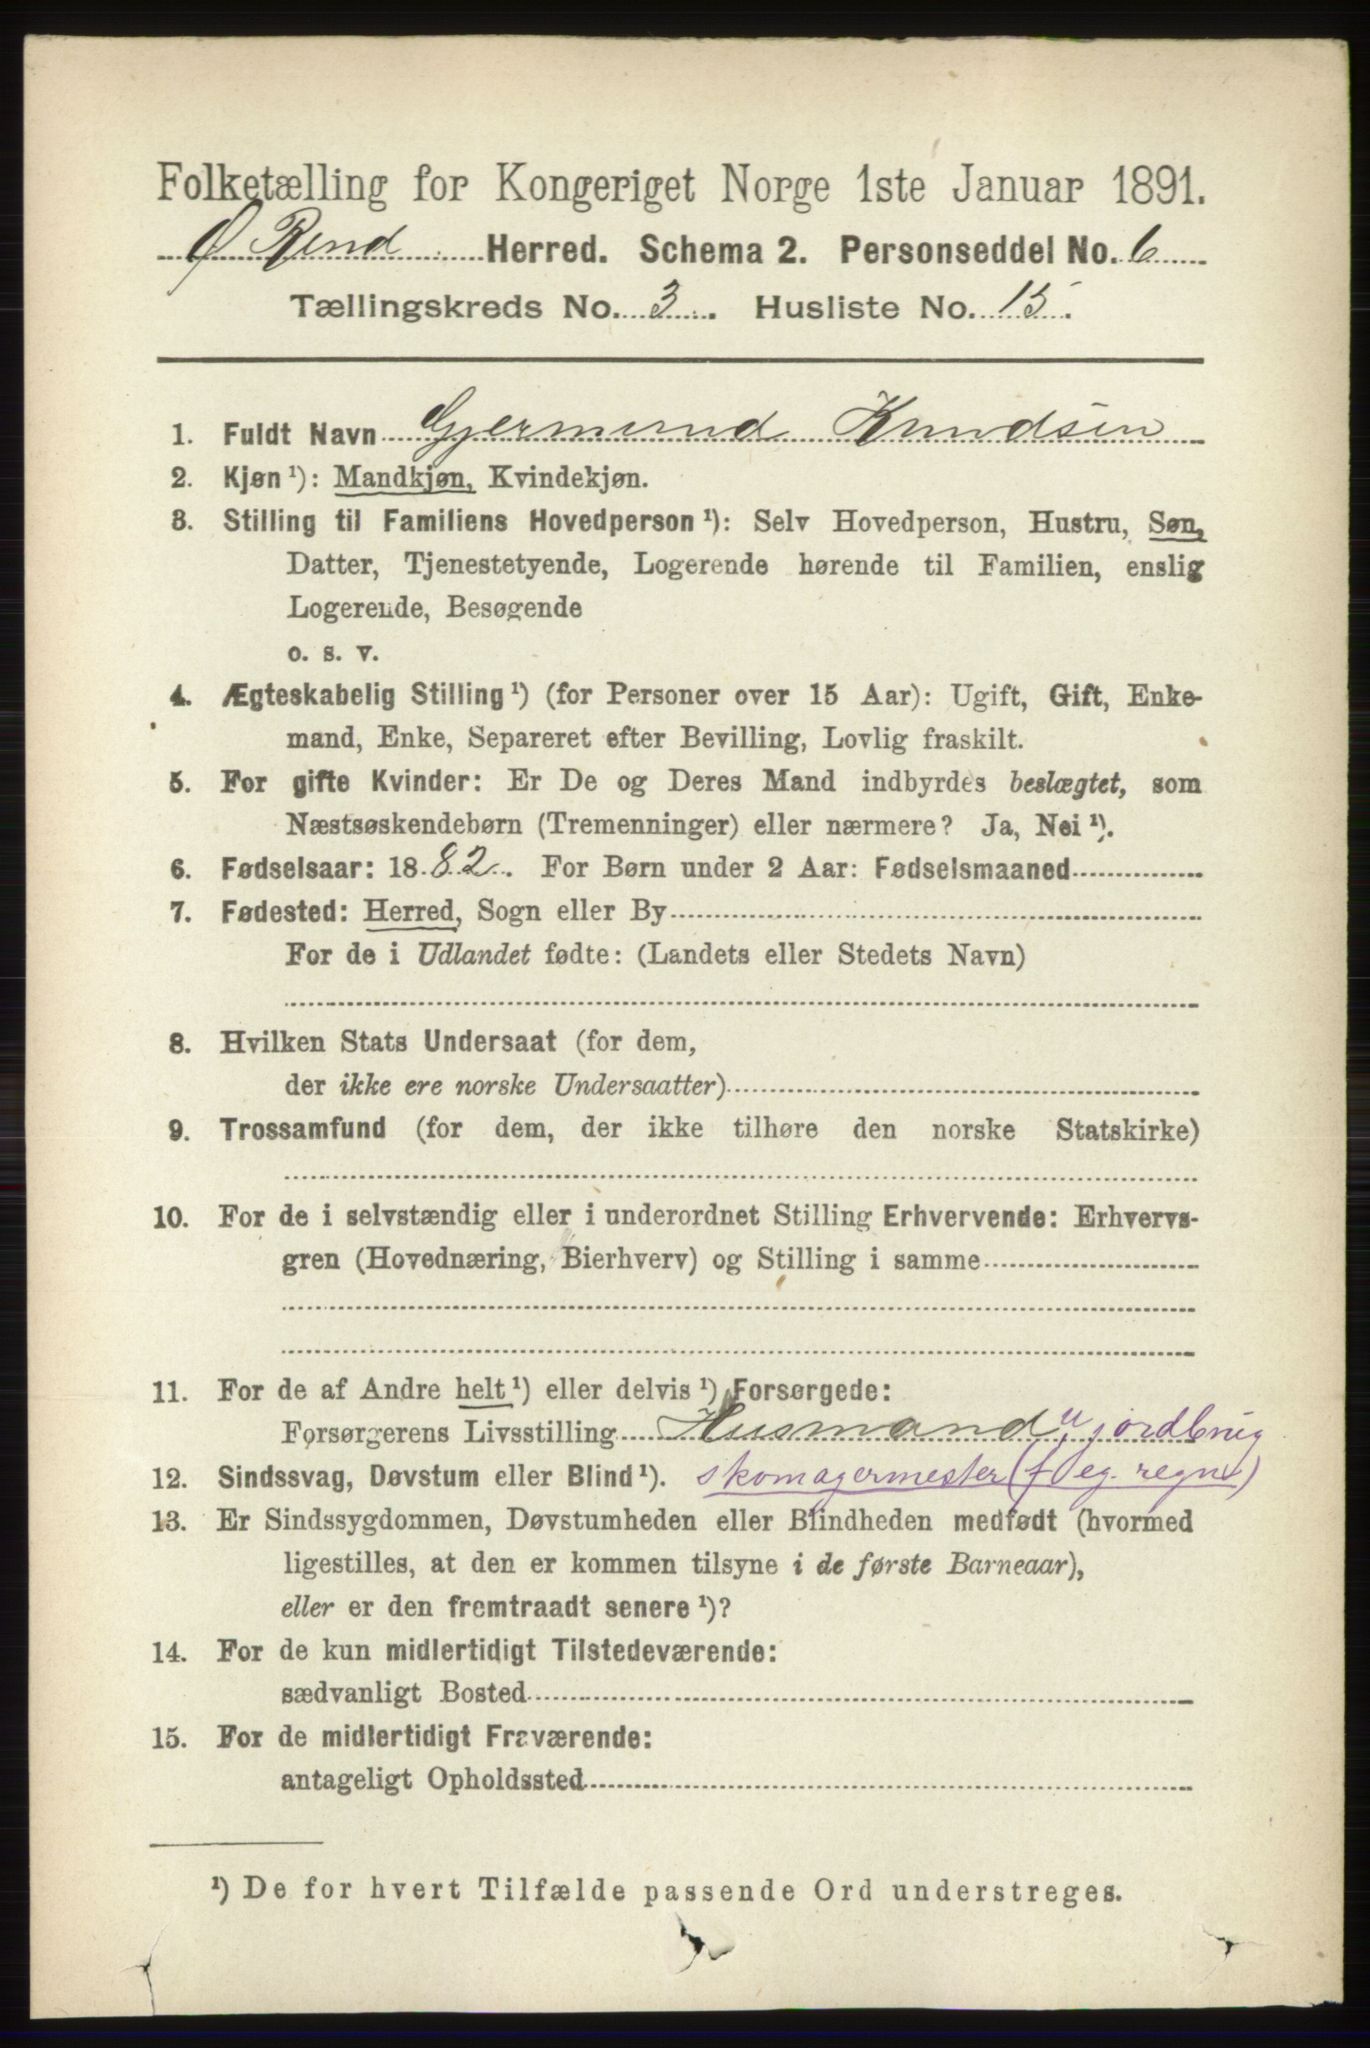 Folketælling for Kongeriget Norge 1ste Januar 1891.
Ø Rend Herred. Schema 2. Personseddel No. 6
Tællingskreds No. 3. Husliste No. 15.
1. Fuldt Navn Gjermund Knudsen
2. Kjøn ¹): Mandkjøn, Kvindekjøn.
3. Stilling til Familiens Hovedperson ¹): Selv Hovedperson, Hustru, Søn,
Datter, Tjenestetyende, Logerende hørende til Familien, enslig
Logerende, Besøgende
o. s. v.
4. Ægteskabelig Stilling ¹) (for Personer over 15 Aar): Ugift, Gift, Enke-
mand, Enke, Separeret efter Bevilling, Lovlig fraskilt.
5. For gifte Kvinder: Er De og Deres Mand indbyrdes beslægtet, som
Næstsøskendebørn (Tremenninger) eller nærmere? Ja, Nei ¹).
6. Fødselsaar: 1882. For Børn under 2 Aar: Fødselsmaaned
7. Fødested: Herred, Sogn eller By
For de i Udlandet fødte: (Landets eller Stedets Navn)
8. Hvilken Stats Undersaat (for dem,
der ikke ere norske Undersaatter)
9. Trossamfund (for dem, der ikke tilhøre den norske Statskirke)
10. For de i selvstændig eller i underordnet Stilling Erhvervende: Erhvervs-
gren (Hovednæring, Bierhverv) og Stilling i samme
11. For de af Andre helt ¹) eller delvis ¹) Forsørgede:
Forsørgerens Livsstilling Husmand u jordbrug
12. Sindssvag, Døvstum eller Blind ¹). skomagermester (f eg. regn)
13. Er Sindssygdommen, Døvstumheden eller Blindheden medfødt (hvormed
ligestilles, at den er kommen tilsyne i de første Barneaar),
eller er den fremtraadt senere ¹)?
14. For de kun midlertidigt Tilstedeværende:
sædvanligt Bosted
15. For de midlertidigt Fraværende:
antageligt Opholdssted
¹) De for hvert Tilfælde passende Ord understreges.